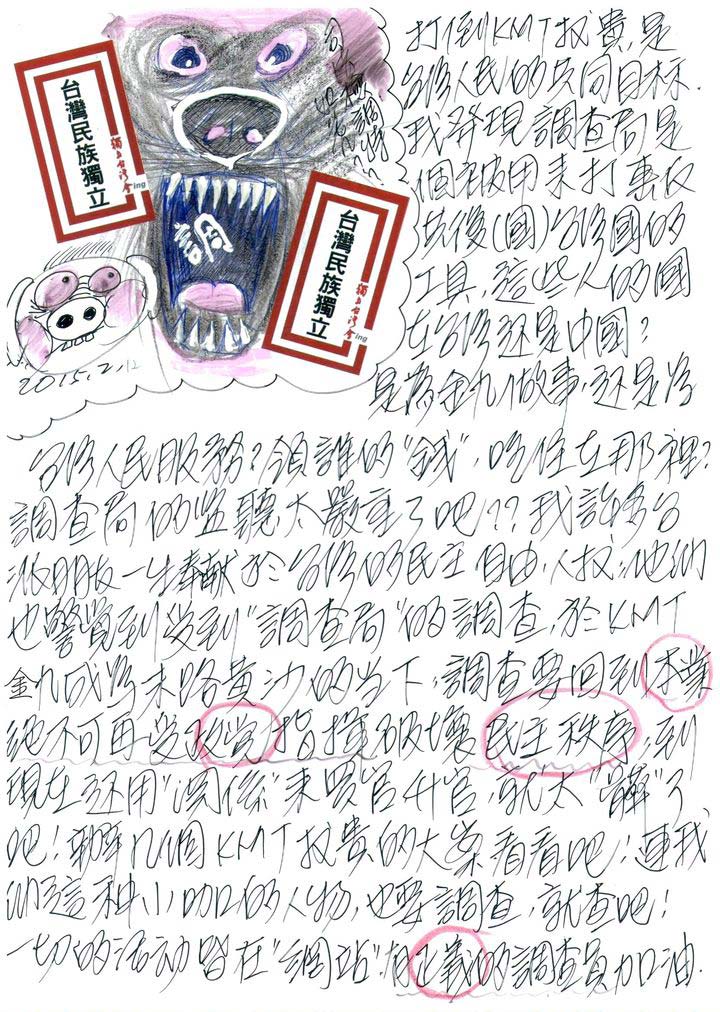 台灣民族獨立
獨立台灣會
ing
調
台灣民族獨立
獨立台灣會
ing
2015.2.12
打倒KMT权貴,是
台湾人民的共同目标.
我發現調查局是
個被用來打車权
共後(國)台湾國的
工具,這些人的國
在台湾还是中國?
是為金九1做事,还是為
台湾人民服務?領誰的"錢",吃住在那裡?
調查局的监聽太嚴重了吧??我許多台
派朋友一生奉献於台湾的民主自由,人权,他們
也警覚到受到"調查局"的調查,於KMT
金九成為末路黄沙的当下,調查要回到本業
絕不可再受政党指揮破壞民主秩序,到
現在还用"関係"來買官升官,就太"髒"了
吧!辦几個KMT权貴的大案看看吧!連我
們這种小咖的人物,也要調查,就查吧!
一切的活动皆在"網站".有正義的調查員加油.